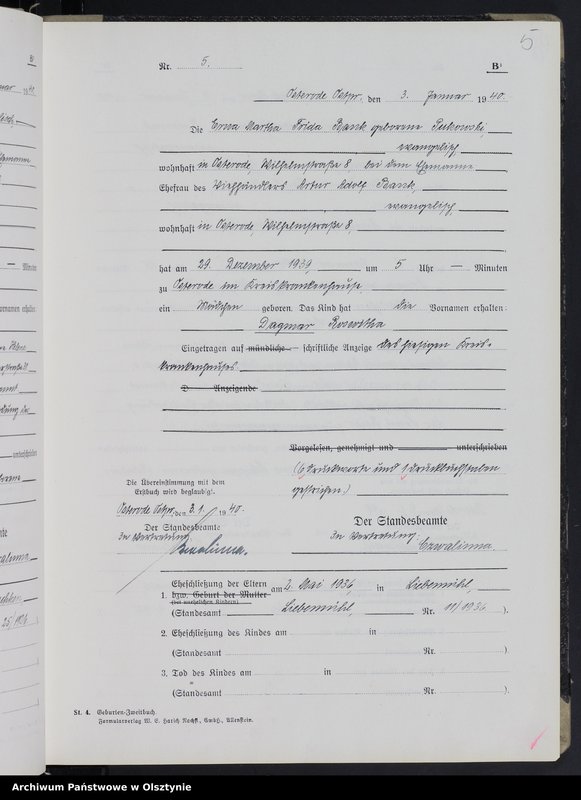 5
Nr. 5.
B
Osterode Ostpr. den 3. Januar 1940.
Die Erna Martha Frida Bank geborene
evangelisch,
wohnhaft in Osterode, Wilhelmstraße 8 bei dem Ehemanne
Ehefrau des Viehhändlers Artur Adolf Bank,
evangelisch,
wohnhaft in Osterode Wilhelmstraße 8,
hat am 29. Dezember 1939, um 5 Uhr — Minuten
zu Osterode im Kreiskrankenhause,
ein Mädchen geboren. Das Kind hat die Vornamen erhalten:
Dagmar Roswitha
Eingetragen auf mündliche — schriftliche Anzeige des hiesigen Kreis-
krankenhauses
D Anzeigende
Vorgelesen, genehmigt und unterschrieben
(6 Druckworte und 1 Druckbuchstaben
gestrichen.)
Die Übereinstimmung mit dem
Erstbuch wird beglaubigt.
Osterode Ostpr. den 3. 1. 1940.
Der Standesbeamte
In Vertretung
Czwalinna.
Der Standesbeamte
In Vertretung:
Czwalinna.
1. Eheschließung der Eltern
bzw. Geburt der Mutter
(bei unehelichen Kindern)
am 2. Mai 1936, in Liebemühl,
(Standesamt Liebemühl, Nr. 11/1936 ).
2. Eheschließung des Kindes am in
(Standesamt Nr. ).
3. Tod des Kindes am in
(Standesamt Nr. ).
St. 4. Geburten-Zweitbuch.
Formularverlag W. E. Harich Nachfl., GmbH., Allenstein.
Archiwum Państwowe w Olsztynie